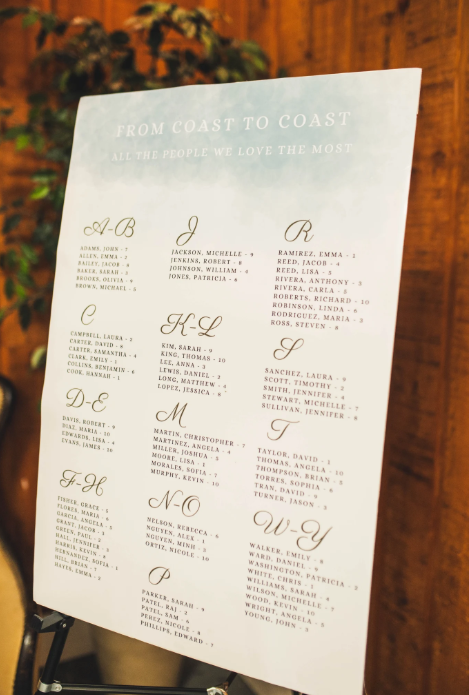 FROM COAST TO COAST
ALL THE PEOPLE WE LOVE THE MOST
A-B
ADAMS, JOHN - 7
ALLEN, EMMA - 2
BAILEY, JACOB - 8
BAKER, SARAH - 3
BROOKS, OLIVIA - 9
BROWN, MICHAEL - 5
C
CAMPBELL, LAURA - 2
CARTER, DAVID - 8
CARTER, SAMANTHA - 4
CLARK, EMILY - 1
COLLINS, BENJAMIN - 6
COOK, HANNAH - 1
D-E
DAVIS, ROBERT - 9
DIAZ, MARIA - 10
EDWARDS, LISA - 4
EVANS, JAMES - 10
F-H
FISHER, GRACE - 5
FLORES, MARIA - 6
GARCIA, ANGELA - 5
GRANT, JACOB - 4
GREEN, PAUL - 2
HALL, JENNIFER - 3
HARRIS, KEVIN - 9
HERNANDEZ, SOFIA - 1
HILL, BRIAN - 7
HAYES, EMMA - 2
J
JACKSON, MICHELLE - 9
JENKINS, ROBERT - 8
JOHNSON, WILLIAM - 4
JONES, PATRICIA - 6
K-L
KIM, SARAH - 9
KING, THOMAS - 10
LEE, ANNA - 3
LEWIS, DANIEL - 2
LONG, MATTHEW - 4
LOPEZ, JESSICA - 6
M
MARTIN, CHRISTOPHER - 7
MARTINEZ, ANGELA - 4
MILLER, JOSHUA - 5
MOORE, LISA - 1
MORALES, SOFIA - 7
MURPHY, KEVIN - 10
N-O
NELSON, REBECCA - 8
NGUYEN, ALEX - 1
NGUYEN, MINH - 2
ORTIZ, NICOLE - 10
P
PARKER, SARAH - 9
PATEL, RAJ - 3
PATEL, SAM - 6
PEREZ, NICOLE - 8
PHILLIPS, EDWARD - 7
R
RAMIREZ, EMMA - 1
REED, JACOB - 4
REED, LISA - 5
RIVERA, ANTHONY - 3
RIVERA, CARLA - 2
ROBERTS, RICHARD - 10
ROBINSON, LINDA - 6
RODRIGUEZ, MARIA - 3
ROSS, STEVEN - 8
S
SANCHEZ, LAURA - 9
SCOTT, TIMOTHY - 2
SMITH, JENNIFER - 4
STEWART, MICHELLE - 7
SULLIVAN, JENNIFER - 8
T
TAYLOR, DAVID - 1
THOMAS, ANGELA - 10
THOMPSON, BRIAN - 5
TORRES, SOPHIA - 6
TRAN, DAVID - 9
TURNER, JASON - 3
W-Y
WALKER, EMILY - 8
WARD, DANIEL - 9
WASHINGTON, PATRICIA - 2
WHITE, CHRIS - 1
WILLIAMS, SARAH - 4
WILSON, MICHELLE - 7
WOOD, KEVIN - 10
WRIGHT, ANGELA - 5
YOUNG, JOHN - 3